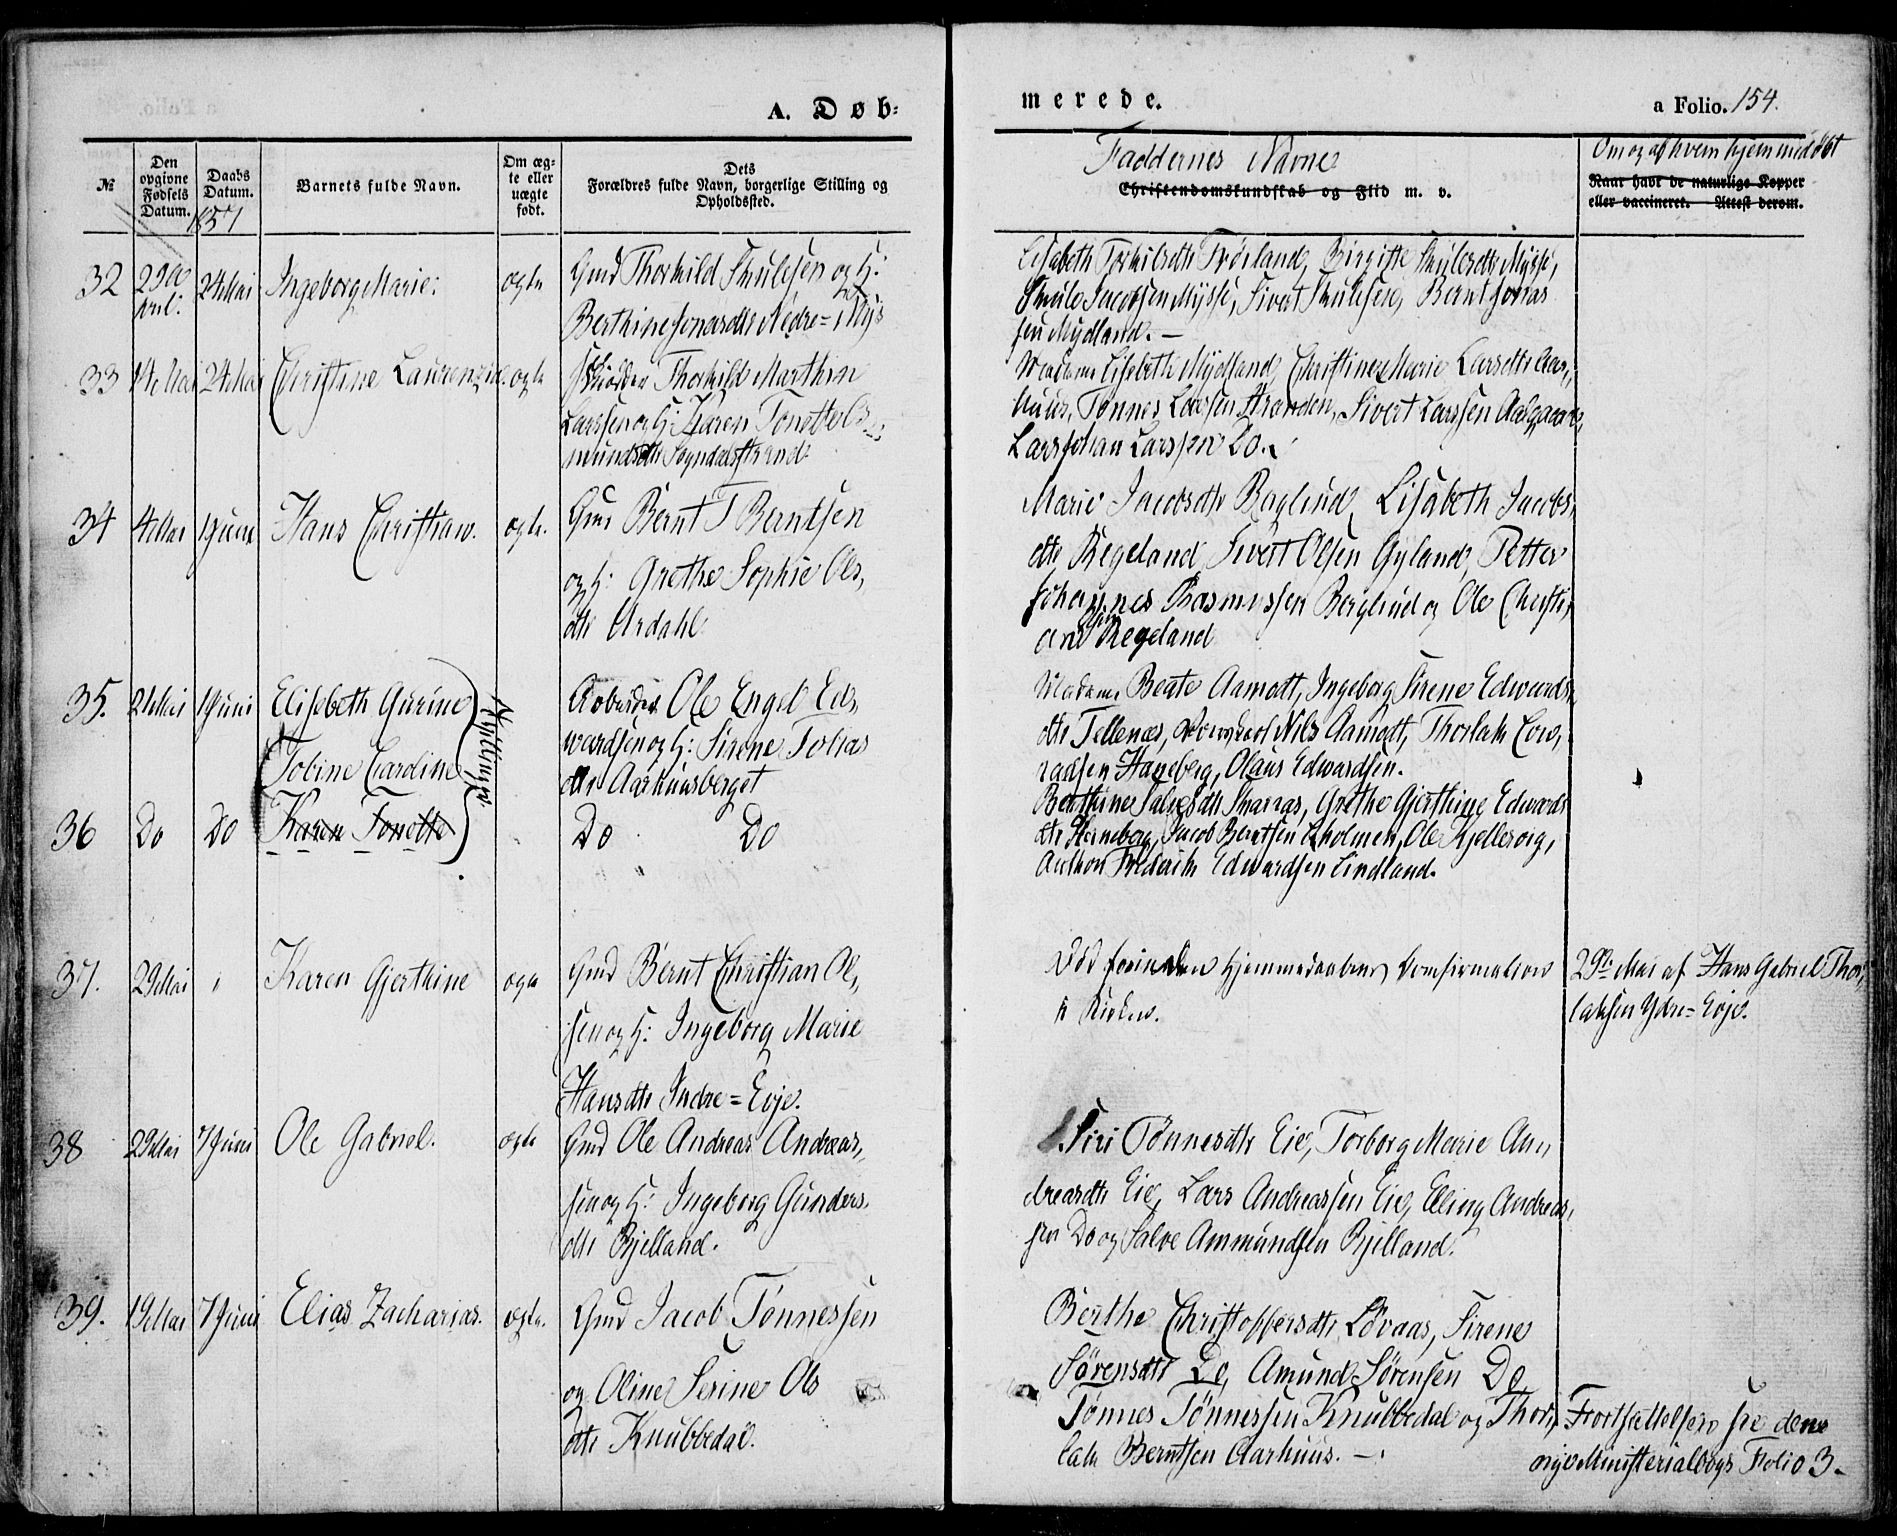 A. Døb-
merede.
a Folio. 154.
№
Den
opgivne
Fødsels
Datum.
Daabs
Datum.
1857
Barnets fulde Navn.
Om æg-
te eller
uægte
født.
Dets
Forældres fulde Navn, borgerlige Stilling og
Opholdssted.
Faddernes Navne
Christendomskundskab og Flid m. v.
Om og af hvem hjemmedøbt
Naar havt de naturlige Kopper
eller vaccineret. Attest derom.
32 29de April. 24 Mai Ingeborg Marie. ægte Gmd Thorkild Skulesen og H:
Berthine Jonasdtr Nedre=Mys
Elisabeth Torkilsdtr Frøiland, Birgitte Skulesdtr Mysse,
Skule Jacobsen Mysse, Sivert Skulesen, Bernt Jonas
sen Mydland. —
33 14 Mai 24 Mai Christine Laurenzie. ægte Thorkild Marthin
Larssen og H: Karen Tonette Os
mundsdtr Sogndalsstrand.
Madame Elisebeth Mydland, Christine Marie Larsdtr Aar,
huus, Tønnes Larsen Stranden, Sivert Larssen Aalgaard,
Lars Johan Larssen Do.
34 4 Mai 1 Juni Hans Christian. ægte. Gmd Bernt T Berntsen
og H: Grethe Sophie Ols,
dtr Urdahl.
Marie Jacobsdtr Berglund, Lisabeth Jacobs,
dtr Regeland, Sivert Olsen Gyland, Petter
Johannes Rasmussen Berglund og Ole Christi,
ansen Regeland
35. 24 Mai 1 Juni Elisebeth Gurine Arbeider Ole Engel Ed,
Tobine Cardine wardsen og H: Sirene Tobias
Tvillinger
dtr Aarhuusberget
Madame Beate Aamodt, Ingeborg Sirene Edwards,
dtr Tellenæs, Nils Aamodt, Thorlak Con,
radsen Haneberg, Olaus Edwardsen.
36 Do Do Karen Tonette Do Do
Berthine Salvesdtr Skaraas, Grethe Gjerthine Edwards
dtr Haneberg, Jacob Berntsen Eholmen, Ole Kjellevig,
Anthon Frederik Edwardsen Lindland.
37. 29 Mai " Karen Gjerthine ægte Gmd Bernt Christian Ol,
sen og H: Ingeborg Marie
Hansdtr Indre=Eoje.
Død forinden Hjemmedaabens Comfirmation
i Kirken.
29de Mai af Hans Gabriel Thor,
laksen Ydre=Eoje.
38 29 Mai 7 Juni Ole Gabriel. ægte Gmd Ole Andreas Andreas,
sen og H: Ingeborg Gunders,
dtr Bjelland.
Siri Tønnesdtr Eie, Torborg Marie An,
dreasdtr Eie, Lars Andreassen Eie, Elling Andreas,
sen Do og Salve Ammundsen Bjelland.
39. 19 Mai 7 Juni Elias Zacharias. ægte. Gmd Jacob Tønnessen
og Oline Serine Ols
dtr Knubbedal.
Berthe Christoffersdtr Løvaas, Sirene
Sørensdtr Do, Amund Sørensen Do
Tønnes Tønnessen Knubbedal og Thor,
lak Berntsen Aarhuus. —
Fortsættelsen see den
nye Ministerialbogs Folio 3.